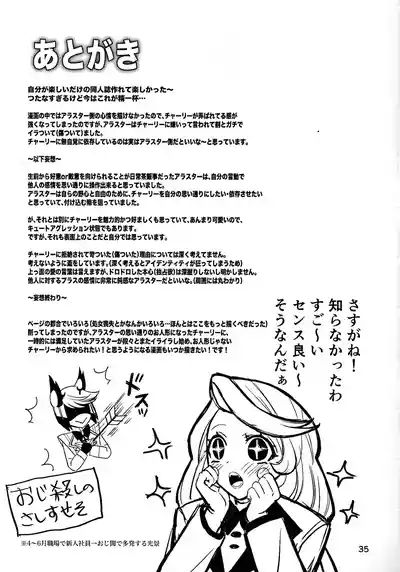 あとがき
自分が楽しいだけの同人誌作れて楽しかった～
つたなすぎるけど今はこれが精一杯…
漫画の中ではアラスター側の心情を描けなかったので、チャーリーが弄ばれてる感が
強くなってしまったのですが、アラスターはチャーリーに嫌いって言われて割とガチで
イラついて（傷ついて）ました。
チャーリーに無自覚に依存しているのは実はアラスター側だといいな～と思っています。
～以下妄想～
生前から好意or敵意を向けられることが日常茶飯事だったアラスターは、自分の言動で
他人の感情を思い通りに操作出来ると思っていました。
アラスターは自らの野心と自由のために、チャーリーを自分の思い通りにしたい・依存させたい
と思っていて、付け込む隙を狙っていました。
が、それとは別にチャーリーを魅力的かつ好ましくも思っていて、あんまり可愛いので、
キュートアグレッション状態でもあります。
ですが、それも表面上のことだと自分では思っています。
チャーリーに拒絶されて苛ついた（傷ついた）理由については深く考えてません。
考えないように蓋をしています。（深く考えるとアイデンティティが狂ってしまうため）
上っ面の愛の言葉は言えますが、ドロドロした本心（独占欲）は深掘りしないし明かしません。
他人に対するプラスの感情に非常に鈍感なアラスターだといいな。（周囲には丸わかり）
～妄想終わり～
ページの都合でいろいろ（処女喪失とかなんかいろいろ…ほんとはここをもっと描くべきだった）
削ってしまったのですが、アラスターの思い通りのお人形になったチャーリーに、
一時的には満足していたアラスターが段々とまたイライラし始め、お人形じゃない
チャーリーから求められたい！と思うようになる漫画もいつか描きたい！です！
さすがね！
知らなかったわ
すご～い
センス良い～
そうなんだぁ
おじ殺しの
さしすせそ
※4～6月職場で新入社員→おじ間で多発する光景
35